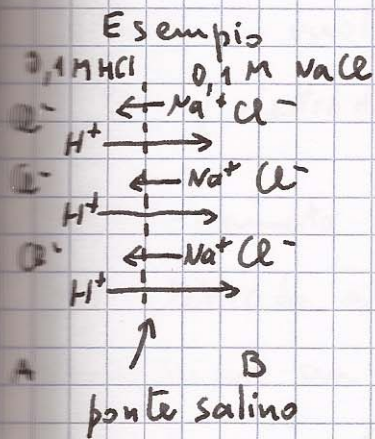 Esempio
0,1 M HCl 0,1 M NaCl
Cl⁻ Na⁺ Cl⁻
H⁺
Cl⁻ Na⁺ Cl⁻
H⁺
Cl⁻ Na⁺ Cl⁻
H⁺
A B
ponte salino